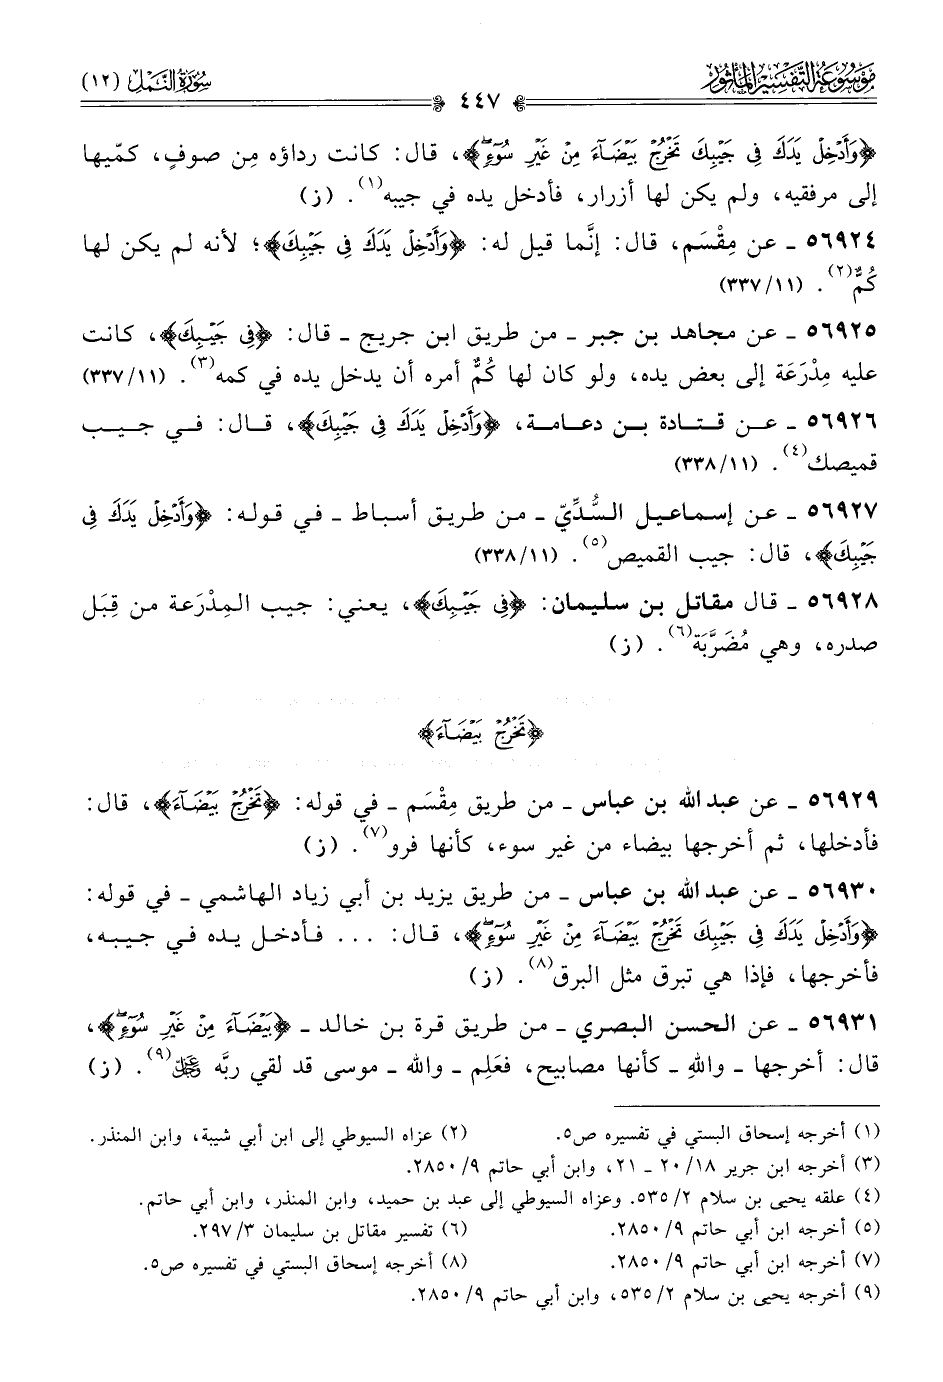 موسوعة التفسير المأثور
٤٤٧
سورة النمل (١٢)
﴿وَأَدْخِلْ يَدَكَ فِي جَيْبِكَ تَخْرُجْ بَيْضَآءَ مِنْ غَيْرِ سُوٓءٍۖ﴾، قال: كانت رداؤه مِن صوفٍ، كمّيها
إلى مرفقيه، ولم يكن لها أزرار، فأدخل يده في جيبه(١). (ز)
٥٦٩٢٤ ـ عن مِقْسَم، قال: إنَّما قيل له: ﴿وَأَدْخِلْ يَدَكَ فِي جَيْبِكَ﴾؛ لأنه لم يكن لها
كُمٌّ(٢). (١١/ ٣٣٧)
٥٦٩٢٥ ـ عن مجاهد بن جبر ـ من طريق ابن جريج ـ قال: ﴿فِي جَيْبِكَ﴾، كانت
عليه مِدْرَعَة إلى بعض يده، ولو كان لها كُمٌّ أمره أن يدخل يده في كمه(٣). (١١/ ٣٣٧)
٥٦٩٢٦ ـ عن قتادة بن دعامة، ﴿وَأَدْخِلْ يَدَكَ فِي جَيْبِكَ﴾، قال: في جيب
قميصك(٤). (١١/ ٣٣٨)
٥٦٩٢٧ ـ عن إسماعيل السُّدِّيّ ـ من طريق أسباط ـ في قوله: ﴿وَأَدْخِلْ يَدَكَ فِي
جَيْبِكَ﴾، قال: جيب القميص(٥). (١١/ ٣٣٨)
٥٦٩٢٨ ـ قال مقاتل بن سليمان: ﴿فِي جَيْبِكَ﴾، يعني: جيب المِدْرَعة من قِبَل
صدره، وهي مُضَرَّبَة(٦). (ز)
﴿تَخْرُجْ بَيْضَآءَ﴾
٥٦٩٢٩ ـ عن عبد الله بن عباس ـ من طريق مِقْسَم ـ في قوله: ﴿تَخْرُجْ بَيْضَآءَ﴾، قال:
فأدخلها، ثم أخرجها بيضاء من غير سوء، كأنها فرو(٧). (ز)
٥٦٩٣٠ ـ عن عبد الله بن عباس ـ من طريق يزيد بن أبي زياد الهاشمي ـ في قوله:
﴿وَأَدْخِلْ يَدَكَ فِي جَيْبِكَ تَخْرُجْ بَيْضَآءَ مِنْ غَيْرِ سُوٓءٍۖ﴾، قال: ... فأدخل يده في جيبه،
فأخرجها، فإذا هي تبرق مثل البرق(٨). (ز)
٥٦٩٣١ ـ عن الحسن البصري ـ من طريق قرة بن خالد ـ ﴿بَيْضَآءَ مِنْ غَيْرِ سُوٓءٍۖ﴾،
قال: أخرجها ـ واللهِ ـ كأنها مصابيح، فعَلِم ـ والله ـ موسى قد لقي ربَّه عز وجل(٩). (ز)
(١) أخرجه إسحاق البستي في تفسيره ص٥. (٢) عزاه السيوطي إلى ابن أبي شيبة، وابن المنذر.
(٣) أخرجه ابن جرير ١٨/ ٢٠ ـ ٢١، وابن أبي حاتم ٩/ ٢٨٥٠.
(٤) علقه يحيى بن سلام ٢/ ٥٣٥. وعزاه السيوطي إلى عبد بن حميد، وابن المنذر، وابن أبي حاتم.
(٥) أخرجه ابن أبي حاتم ٩/ ٢٨٥٠. (٦) تفسير مقاتل بن سليمان ٣/ ٢٩٧.
(٧) أخرجه ابن أبي حاتم ٩/ ٢٨٥٠. (٨) أخرجه إسحاق البستي في تفسيره ص٥.
(٩) أخرجه يحيى بن سلام ٢/ ٥٣٥، وابن أبي حاتم ٩/ ٢٨٥٠.